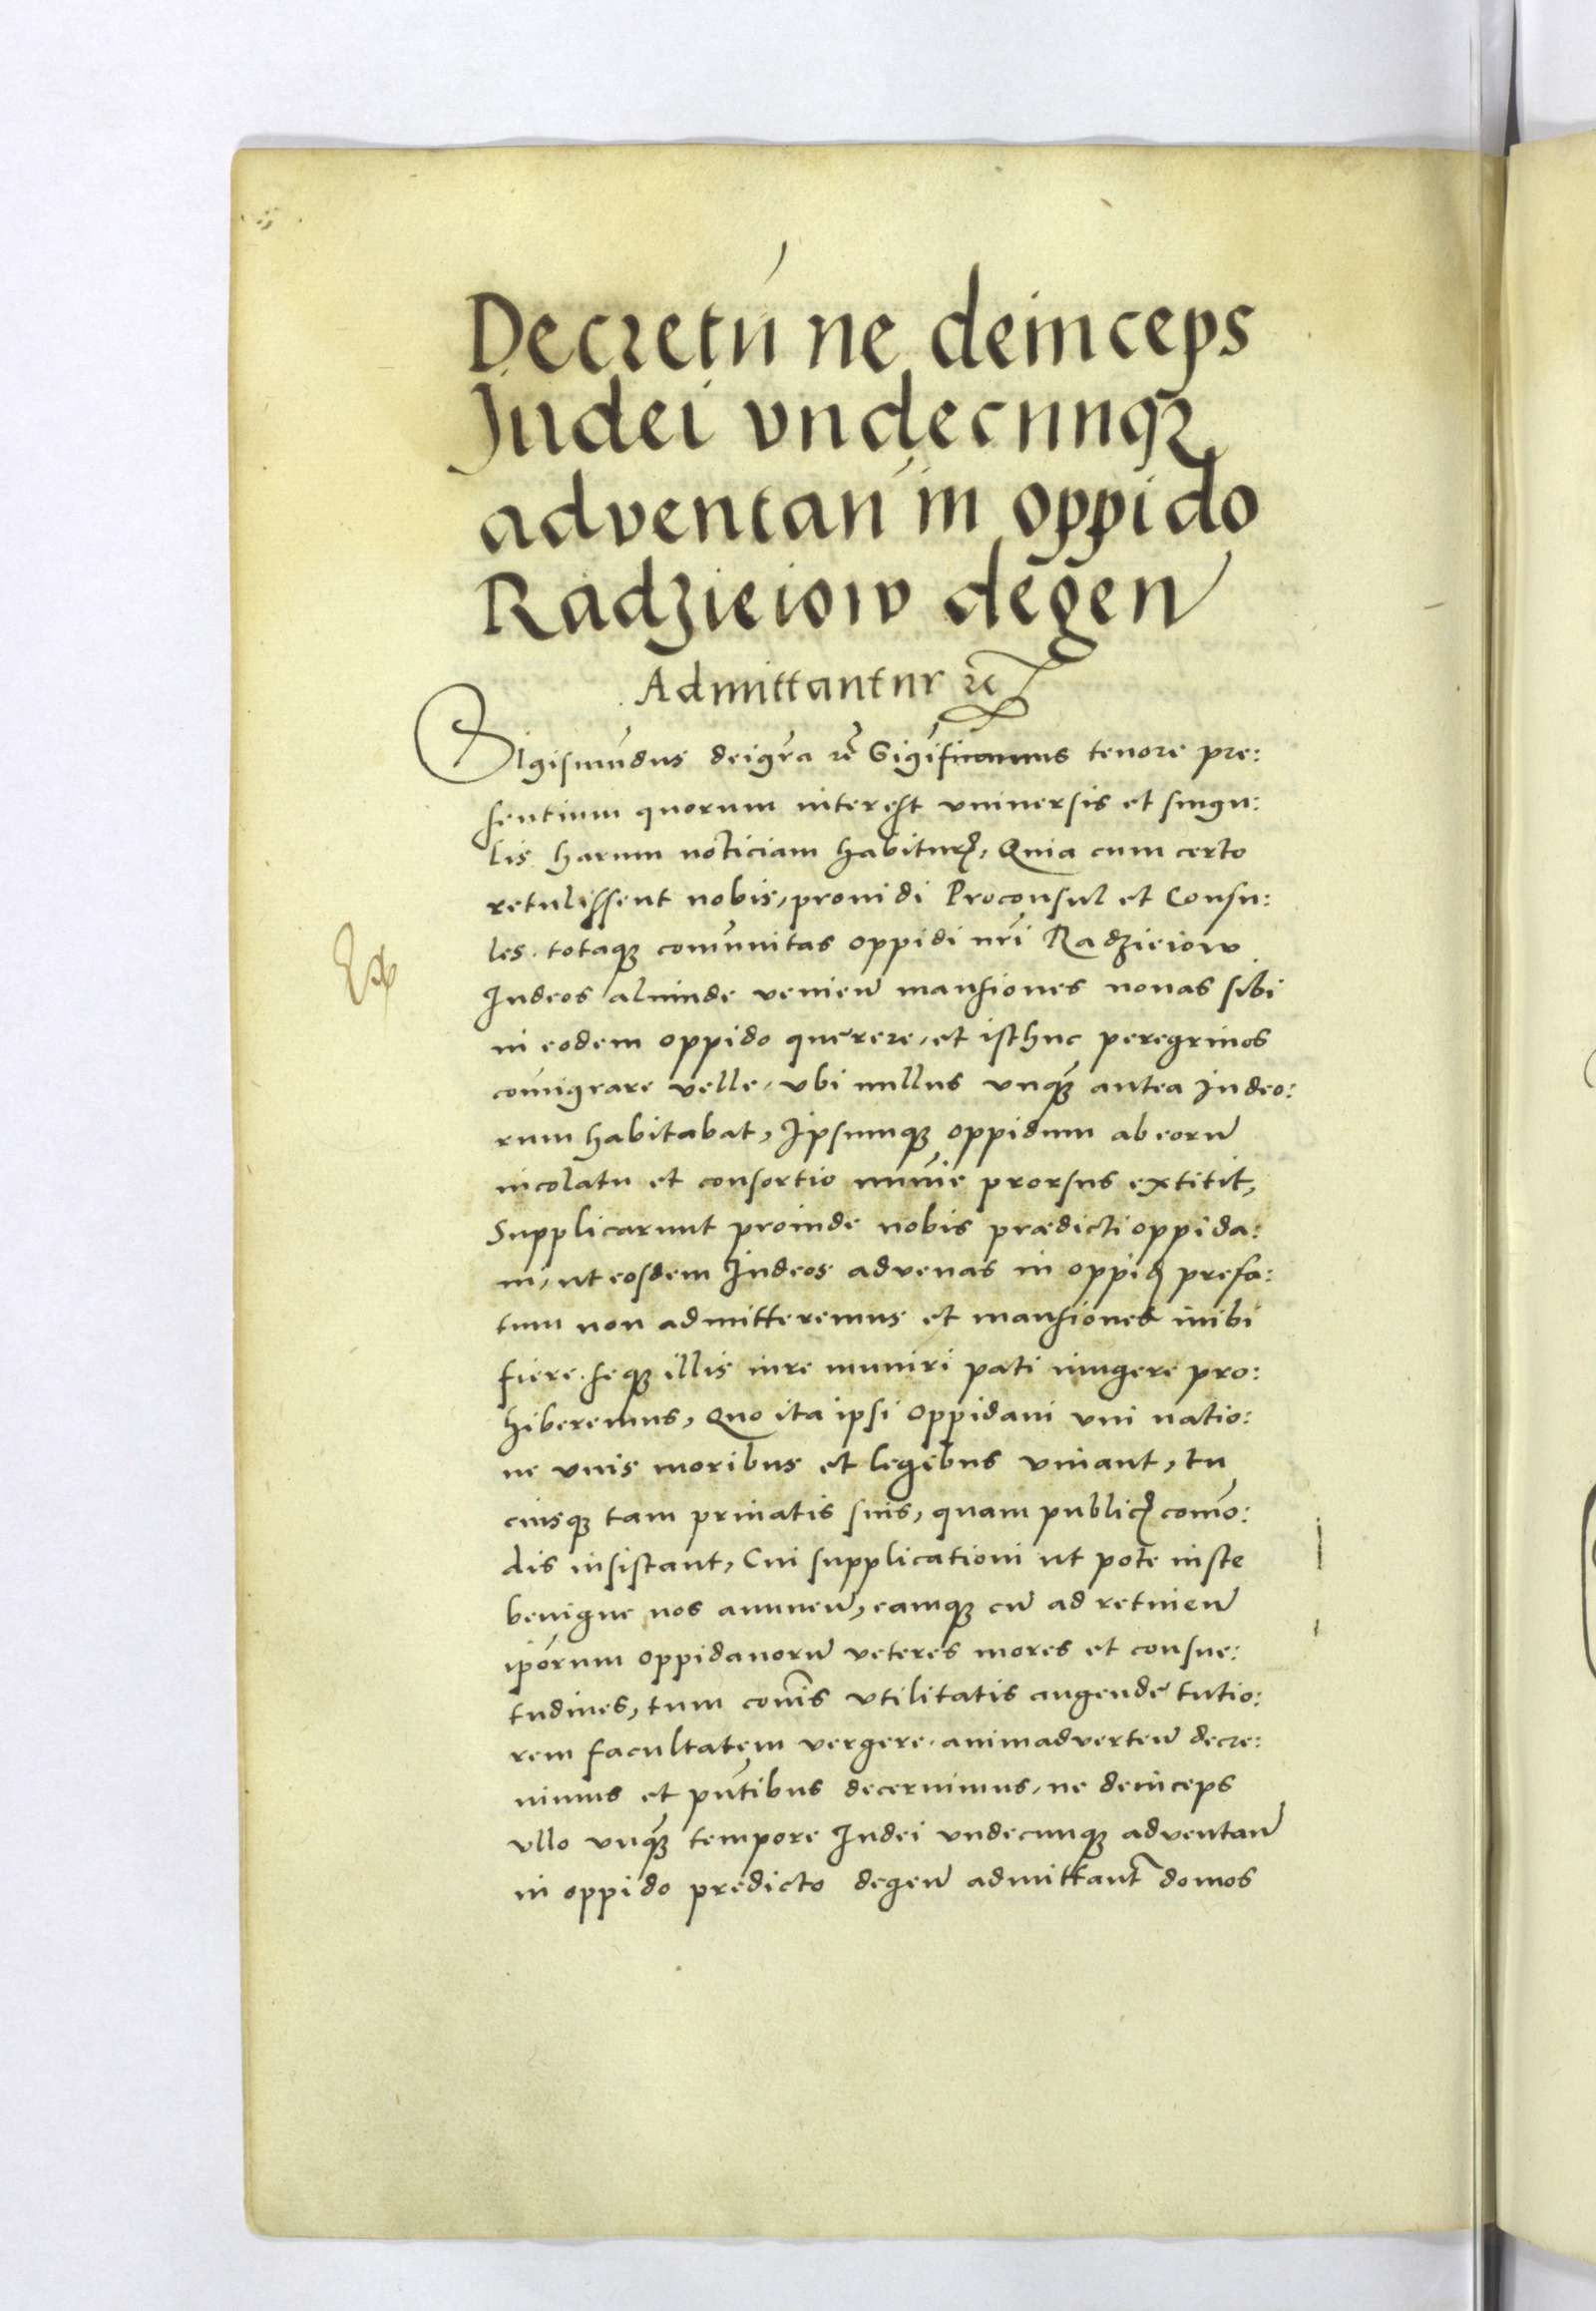 Decretū ne deinceps
Judei vndecunq3
adventan in oppido
Radzieiow degen
Admittantur etc
Sigismūdus dei gr̄a etc Significamus tenore pre:
sentium quorum interest vniuersis et singu:
lis harum noticiam habitur, Quia cum certo
retulissent nobis, prouidi Proconsul et Consu:
les. totaq3 comūnitas oppidi nr̄i Radzieiow
Ex
Iudeos aliunde venien mansiones nouas sibi
in eodem oppido querere, et isthuc peregrinos
com̄igrare velle, vbi nullus vnq3 antea Iudeo:
rum habitabat, Ipsumq3 oppidum ab eorū
incolatu et consortio im̄une prorsus extitit,
Supplicarunt proinde nobis prædicti oppida:
ni, ut eosdem Iudeos advenas in oppid prefa:
tum non admitteremus et mansiones inibi
figere. seq3 illis iure muniri pati iungere pro:
hiberemus, Quo ita ipsi Oppidani vni natio:
ne vnis moribus et legibus viuant, tu
ciusq3 tam priuatis suis, quam public com̄o:
dis insistant, Cui supplicationi ut pote iuste
benigne nos annuen, eamq3 cū ad retinen
ip̄orum oppidanorū veteres mores et consue:
tudines, tum com̄is vtilitatis augende tutio:
rem facultatem vergere. animadverten decre:
uimus et pn̄tibus decernimus, ne deinceps
vllo vnq3 tempore Iudei vndecunq3 adventan
in oppido predicto degen admittant̄ domos